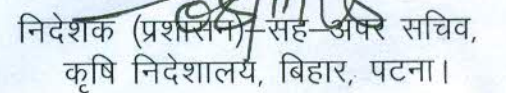 निदेशक (प्रशासन)–सह–अपर सचिव,
कृषि निदेशालय, बिहार, पटना।